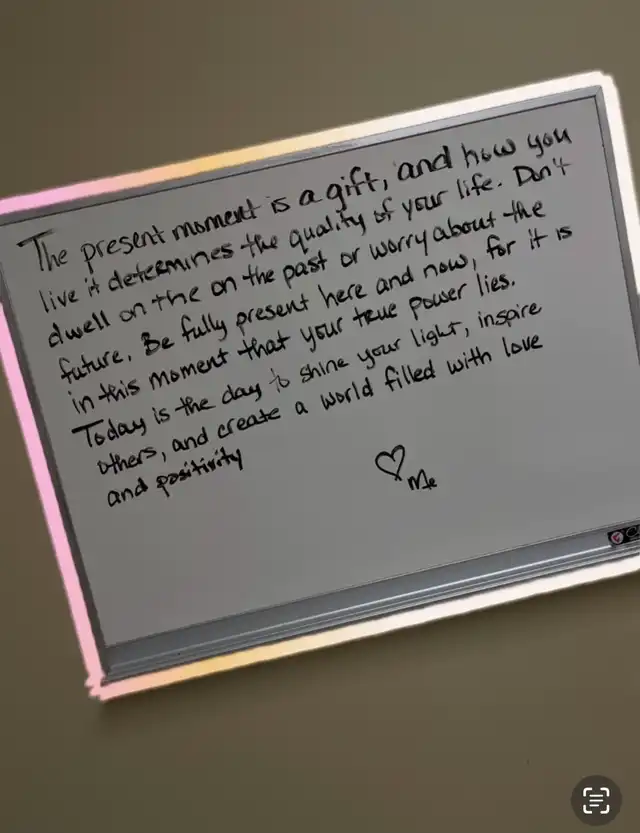 The present moment is a gift, and how you
live it determines the quality of your life. Don't
dwell on the on the past or worry about the
future. Be fully present here and now, for it is
in this moment that your true power lies.
Today is the day to shine your light, inspire
others, and create a world filled with love
and positivity
♡ Me